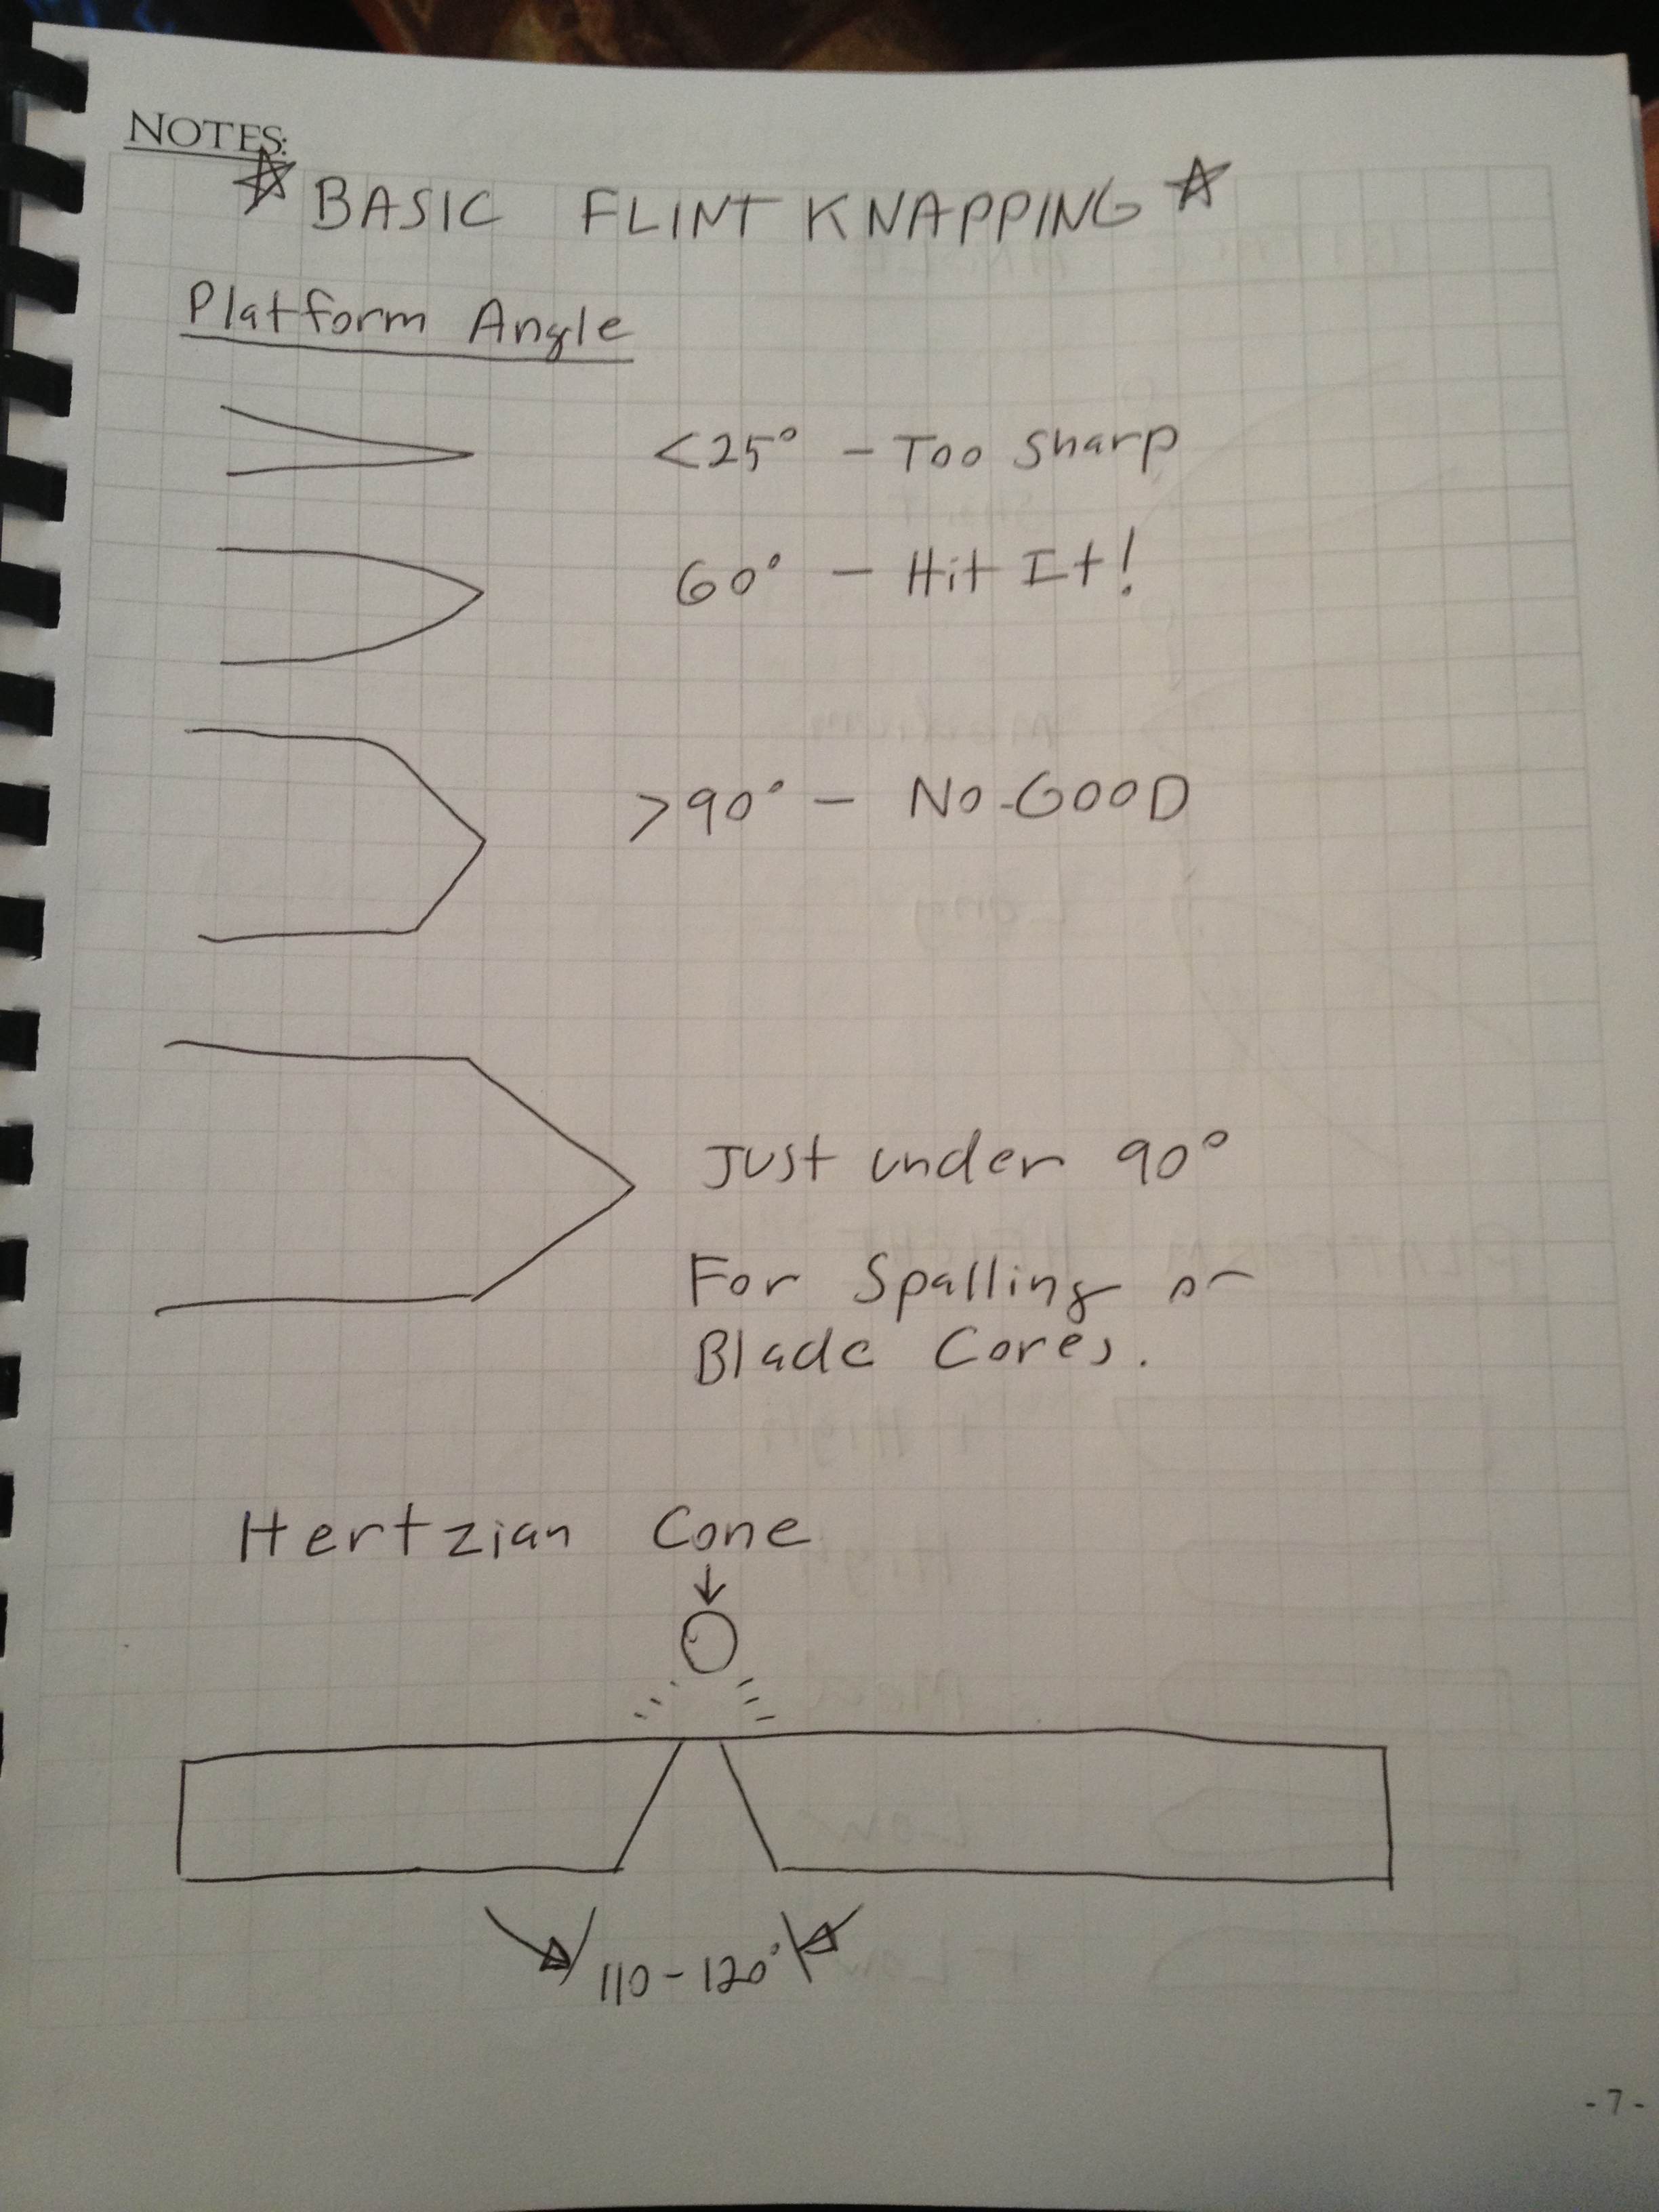 NOTES:
☆ BASIC FLINT KNAPPING ☆
Platform Angle
<25° - Too Sharp
60° - Hit It!
>90° - NO-GOOD
Just under 90°
For Spalling or
Blade Cores.
Hertzian Cone
110-120°
-7-